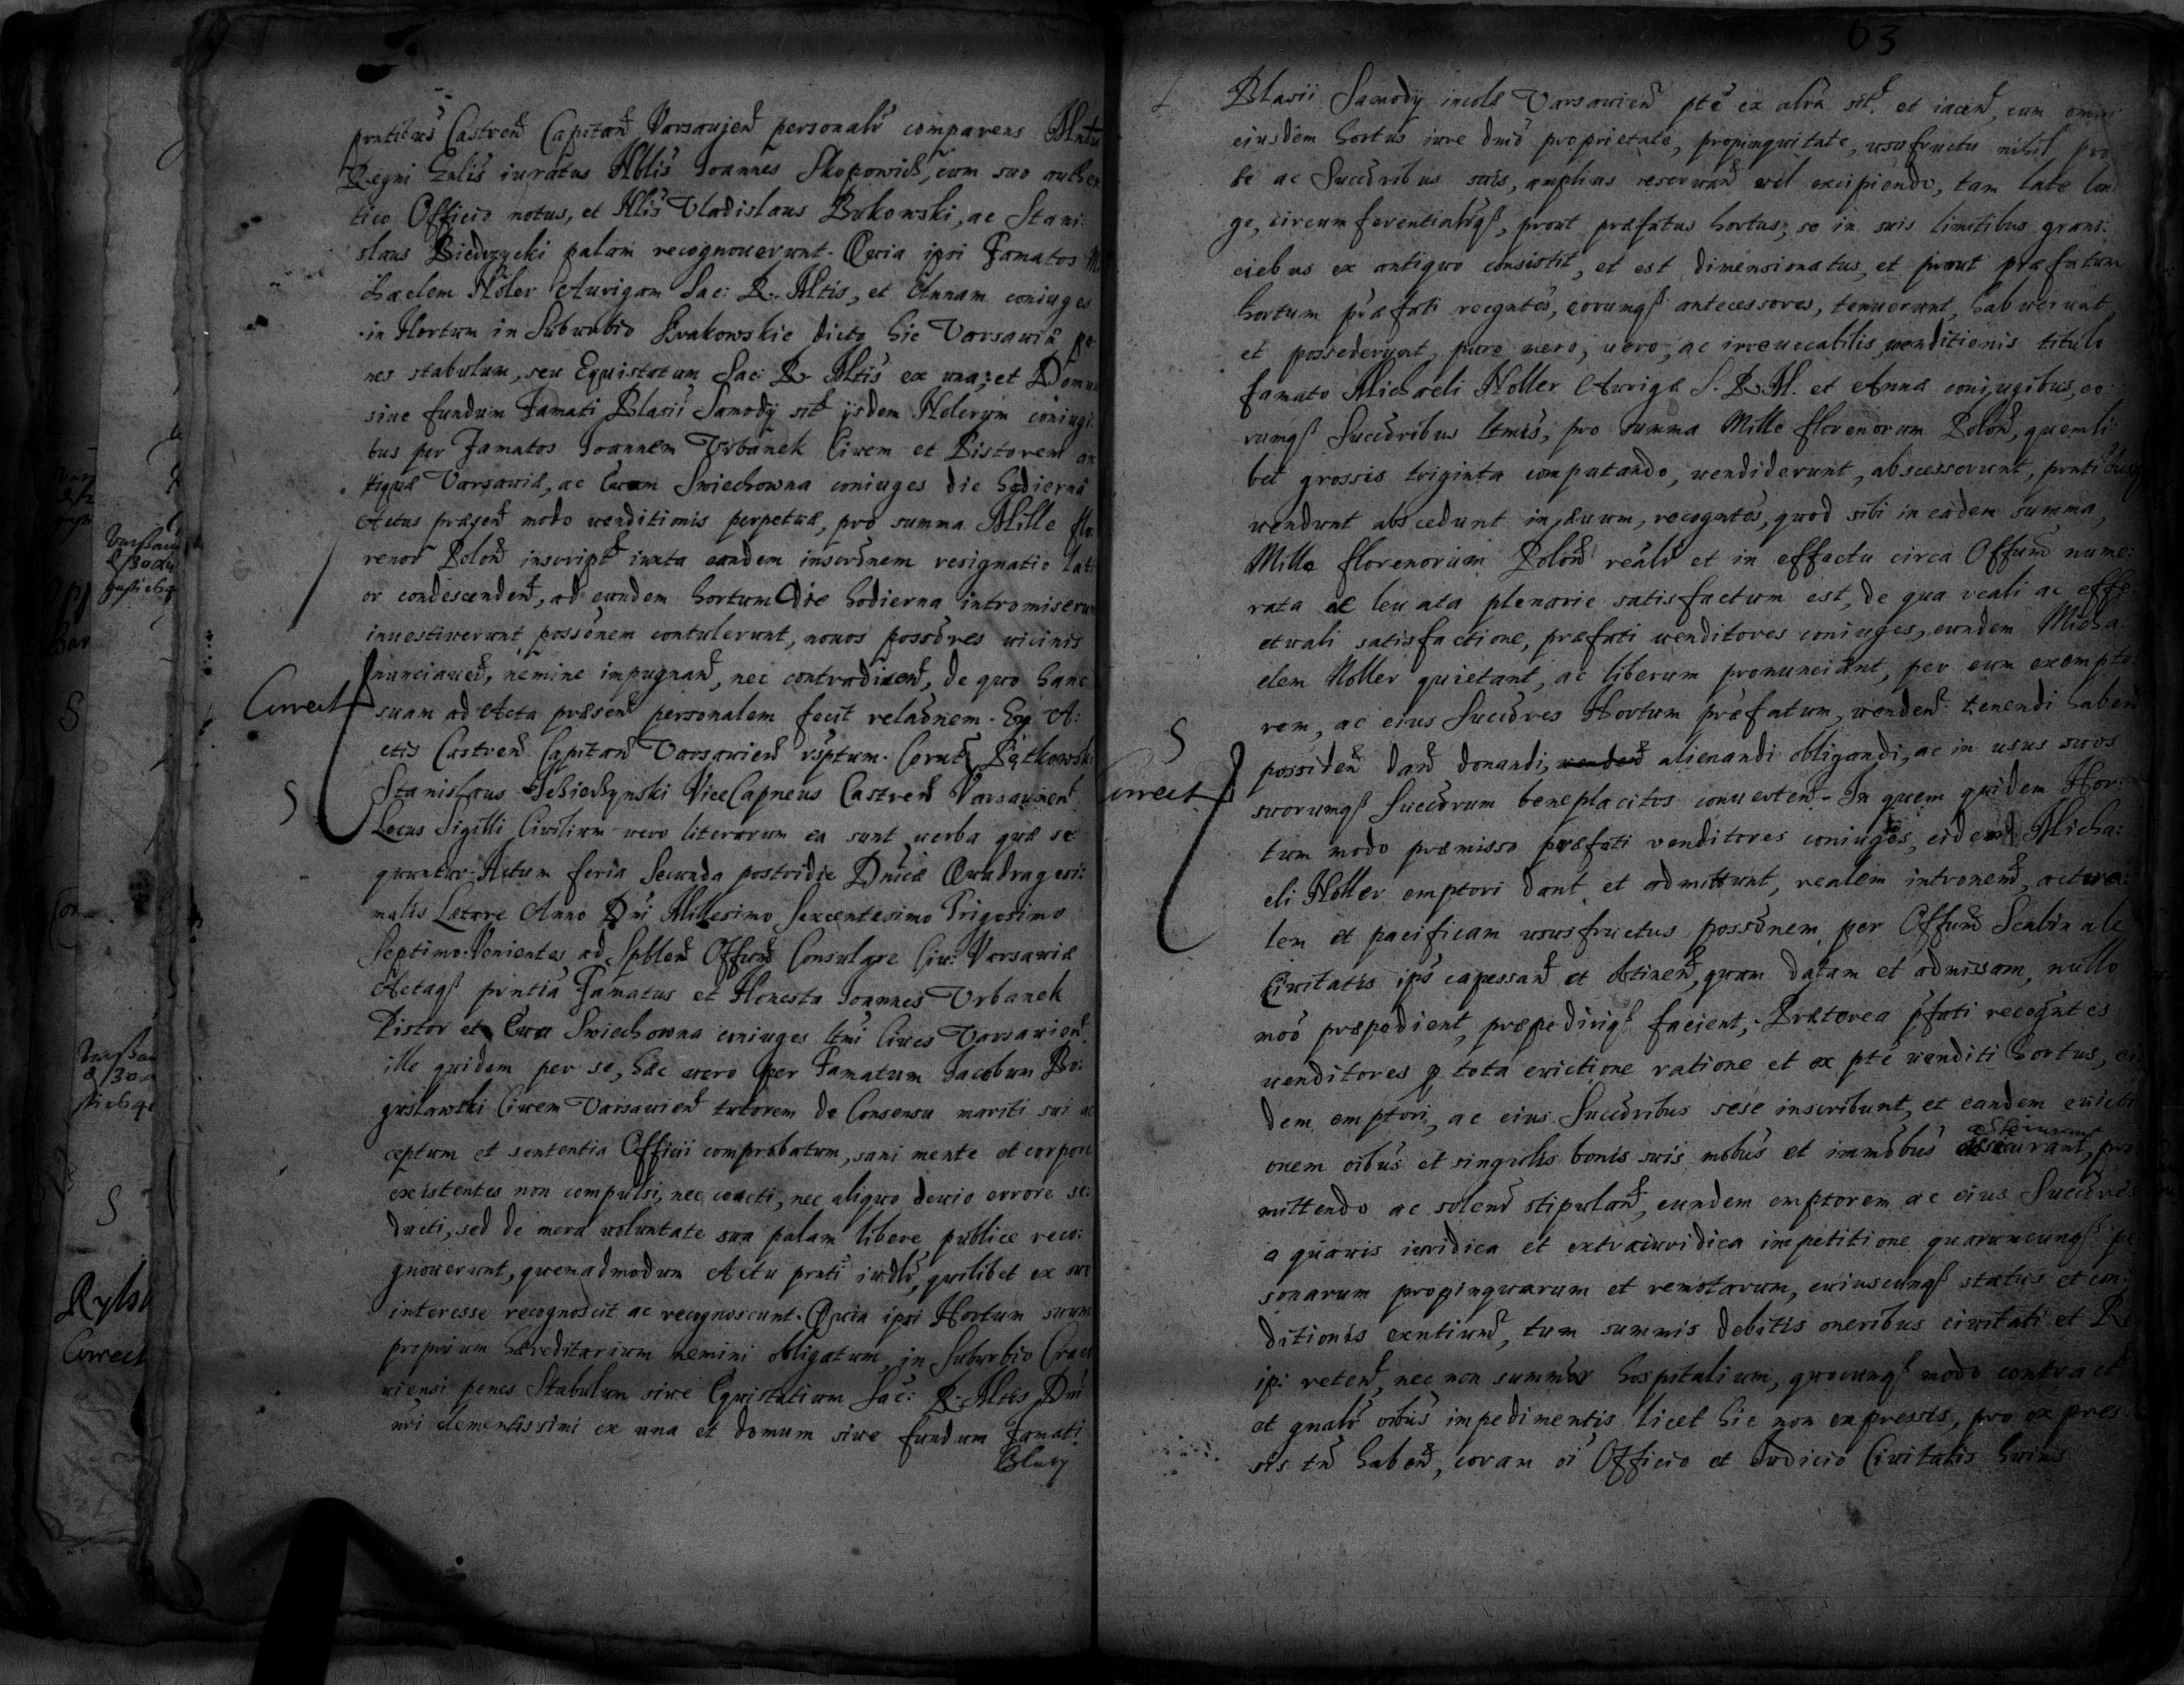 63
prntibus Castren Capitan Varsavien personalr comparens
Regni Gnlis iuratus Nblis Joannes Skopowich, cum suo authen
tico Officio notus, et Nblis Vladislaus Bukowski, ac Stani:
slaus Biedrzycki palam recognoverunt. Quia ipsi Famatos Mi
chaelem Holer Aurigam Sac: R. Mtis, et Annam coniuges
in Hortum in Suburbio Krakowskie dicto hic Varsaviæ pe
nes stabulum, seu Equistatum Sac: R. Mtis ex una, et Domum
sive fundum Famati Blasii Samody sit iisdem Holerum coniugi:
bus per Famatos Joannem Vrbanek Civem et Pistorem an
tiquæ Varsaviæ, ac Evam Swiechowna coniuges die hodierna
Actus præsen modo venditionis perpetuæ, pro summa Mille flo
renor Polon inscript iuxta eandem inscrnem resignatio lati
or condescenden, ad eundem hortum die hodierna intromiserun
investiverunt possnem contulerunt, novos possres vicinis
nunciaver, nemine impugnan, nec contradicen, de quo hanc
Correct
suam ad Acta præsen personalem fecit relaonem. Ex A:
ctis Castren Capitan Varsavien rsptum. Corrt Piątkowski
Stanislaus ViceCapneus Castren Varsavien
S
Locus Sigilli Civilium vero literarum ea sunt verba quæ se
quuntur. Actum feria Secunda postridie Dnicæ Quadragesi:
malis Lætare Anno Dni Millesimo Sexcentesimo Trigesimo
Septimo. Venientes ad Spblem Offium Consulare Civi: Varsaviæ
Actaq prntia Famatus et Honesta Joannes Vrbanek
Pistor et Eva Swiechowna coniuges ltmi Cives Varsavien
ille quidem per se, hæc vero per Famatum Jacobum Bo:
guslawski Civem Varsavien tutorem de Consensu mariti sui ac
ceptum et sententia Officii comprobatum, sani mente et corpore
existentes non compulsi, nec coacti, nec aliquo devio errore se:
ducti, sed de mera voluntate sua palam libere publice reco:
gnoverunt, quemadmodum Actu prnti iudlr, quilibet ex suo
interesse recognoscit ac recognoscunt. Quia ipsi Hortum suum
proprium hæreditarium nemini obligatum, in Suburbio Craco
viensi penes Stabulum sive Equistatium Sac: R. Mtis Dni
nri clementissimi ex una et domum sive fundum Famati
Blasy
Blasii Samody incolæ Varsavien pte ex alra sit et iacen, cum omni
eiusdem hortus iure dnio proprietate, propinquitate, usufructu nihil pro
se ac Succoribus suis, amplius reservan vel excipiendo, tam late lon:
ge, circumferentialrq, prout præfatus hortus, se in suis limitibus grani:
ciebus ex antiquo consistit, et est dimensionatus, et prout præfatum
hortum præfati recgntes, eorumq antecessores, tenuerunt, habuerunt,
et possederunt, puro mero, vero, ac irrevocabilis venditionis titulo
famato Michaeli Holler Aurigæ S. R. M. et Annæ coniugibus, eo:
rumq Succoribus ltmis, pro summa Mille florenorum Polon, quemli:
bet grossis triginta computando, vendiderunt, abscesserunt, prntibusq
vendunt abscedunt in ævum, recogntes, quod sibi in eadem summa,
Mille florenorum Polon realr et in effectu circa Offium nume:
rata ac levata plenarie satisfactum est, de qua reali ac effe:
ctuali satisfactione, præfati venditores coniuges, eundem Micha:
elem Holler quietant, ac liberum pronunciant, per eum exempto:
rem, ac eius Succores Hortum præfatum, venden tenendi haben
S
possiden dan donandi, venden alienandi obligandi, ac in usus suos
Correct
suorumq Succorum beneplacitos converten. In quem quidem Hor:
tum modo præmisso præfati venditores coniuges, eidem Micha:
eli Holler emptori dant et admittunt, realem intronem, actua:
lem et pacificam ususfructus possonem per Offium Scabinale
Civitatis ips capessan et obtinen, quam datam et admissam, nullo
moo præpedient, præpedirique facient, Præterea pfati recogntes
venditores p tota evictione ratione et ex pte venditi hortus, ei
dem emptori, ac eius Succoribus sese inscribunt, et eandem evicti
onem oibus et singulis bonis suis mobus et immobus assecurant, pro
mittendo ac solenr stipulan, eundem emptorem ac eius Succores
a quavis iuridica et extraiuridica impetitione quarumcunq per
sonarum propinquarum et remotarum, cuiuscunq status et con:
ditionis exntium, tum summis debitis oneribus civitati et Re
ip: reten, nec non summar hospitalium, quocunq modo contract
et gnalr oibus impedimentis licet hic non expressis, pro expres
sis tn haben, coram oi Officio et Iudicio Civitatis huius